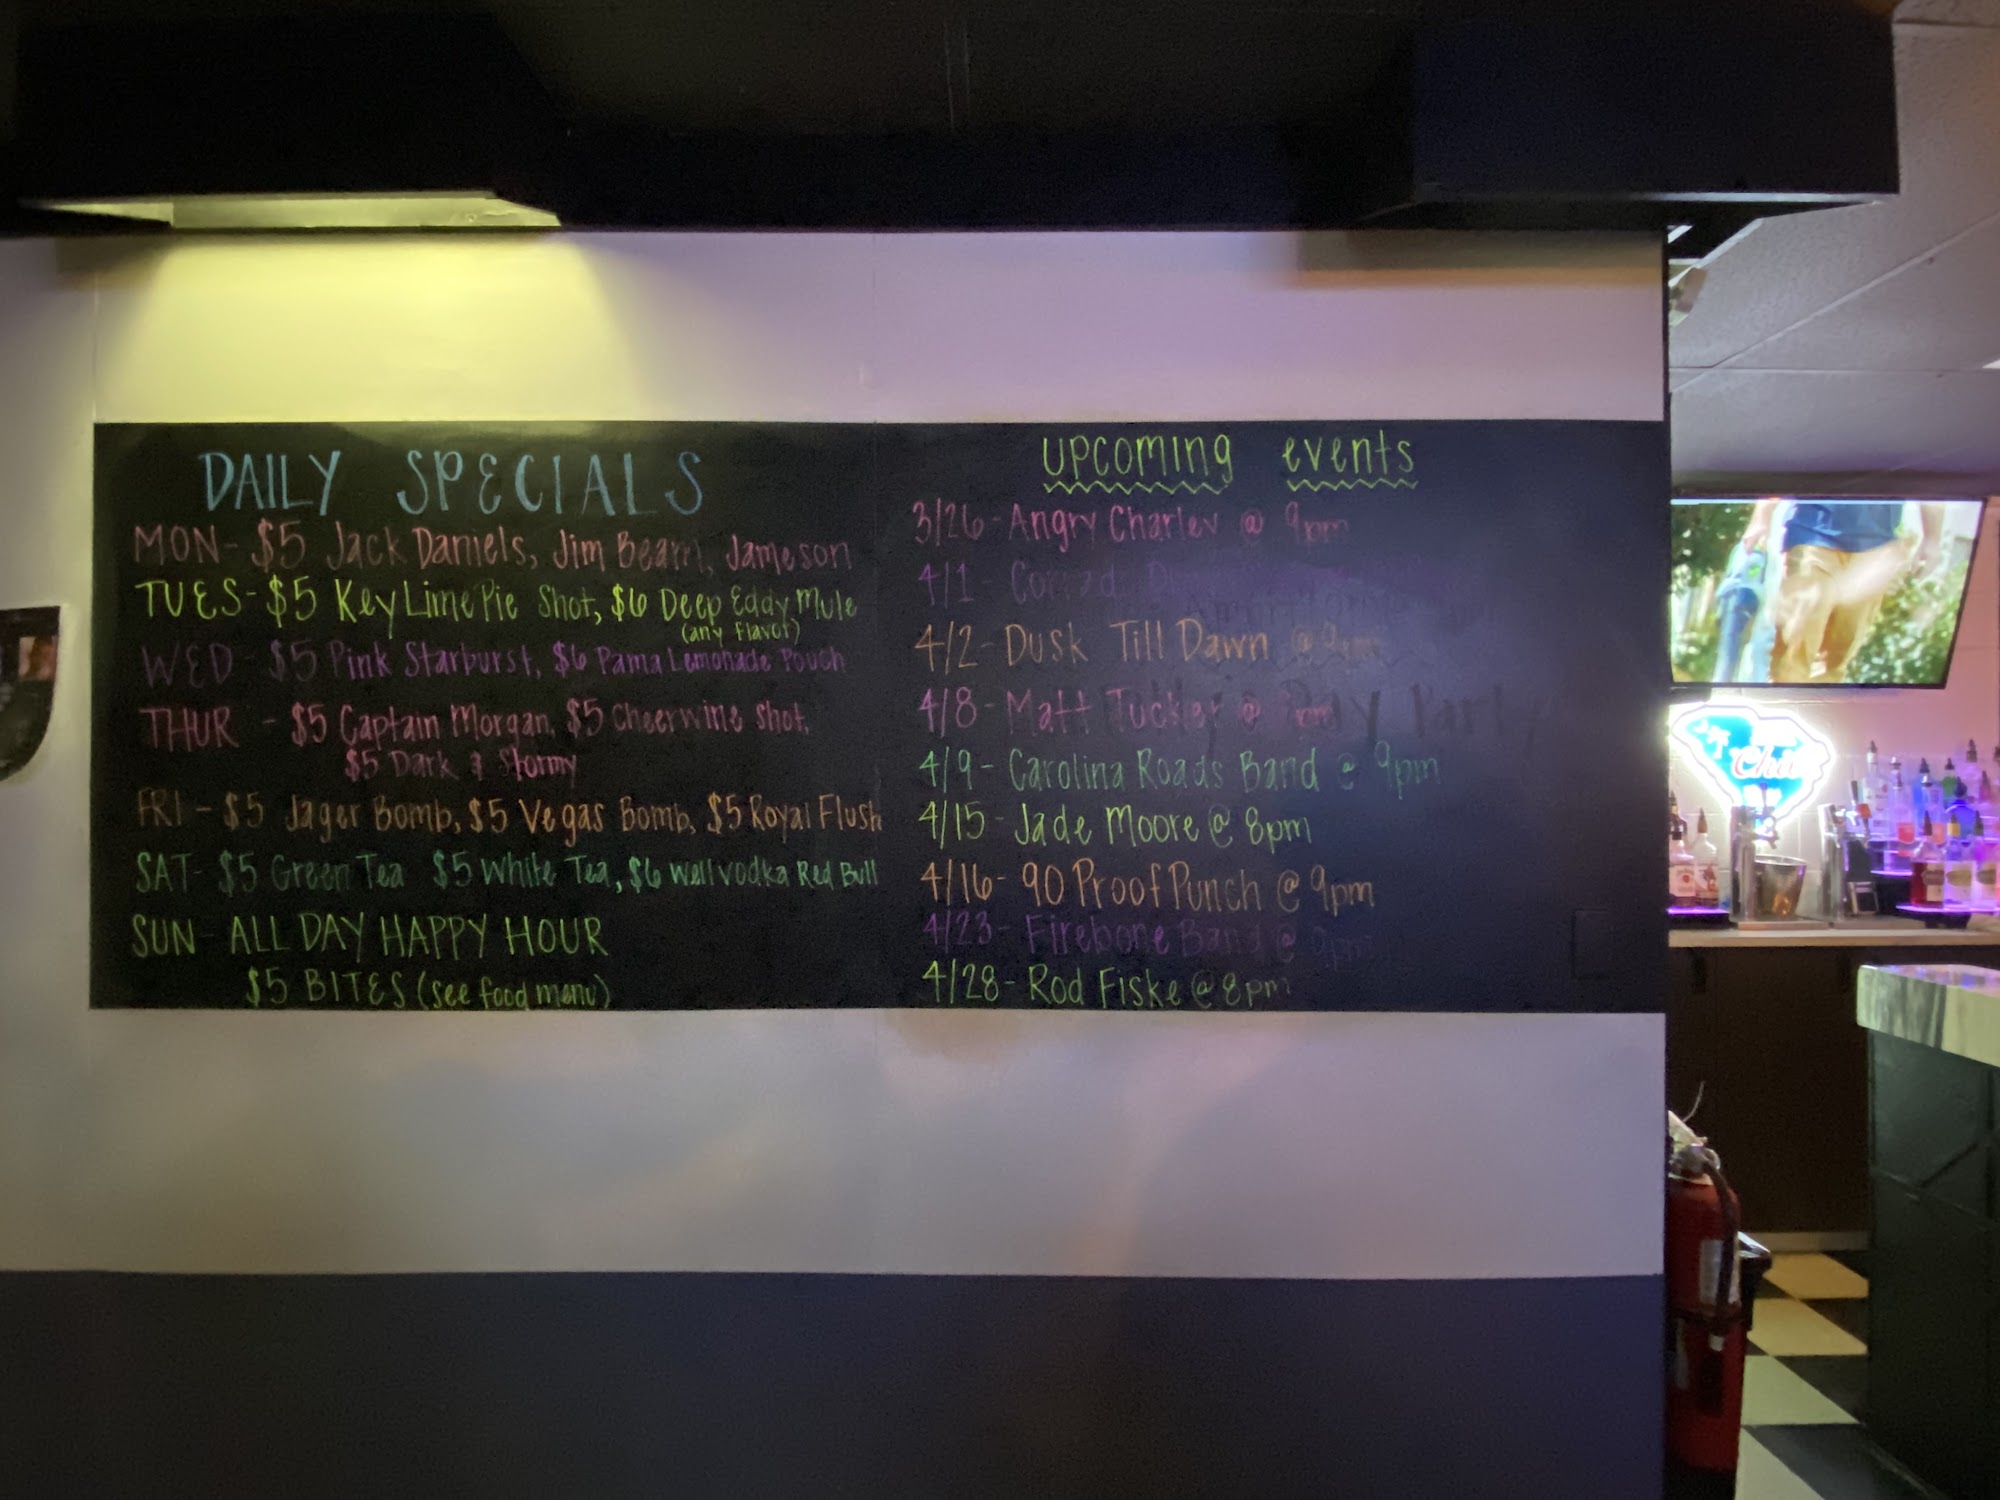 DAILY SPECIALS
MON- $5 Jack Daniels, Jim Beam, Jameson
TUES- $5 Key Lime Pie Shot, $6 Deep Eddy Mule
(any flavor)
WED- $5 Pink Starburst, $6 Pama Lemonade Pouch
THUR - $5 Captain Morgan, $5 Cheerwine Shot,
$5 Dark & Stormy
FRI- $5 Jager Bomb, $5 Vegas Bomb, $5 Royal Flush
SAT- $5 Green Tea $5 White Tea, $6 Well vodka Red Bull
SUN- ALL DAY HAPPY HOUR
$5 BITES (see food menu)
upcoming events
3/26- Angry Charley @ 9pm
4/1-
4/2- Dusk Till Dawn @ 9pm
4/8- Matt Tucker @
4/9- Carolina Roads Band @ 9pm
4/15- Jade Moore @ 8pm
4/16- 90 Proof Punch @ 9pm
4/23- Firebone Band @ 9pm
4/28- Rod Fiske @ 8pm